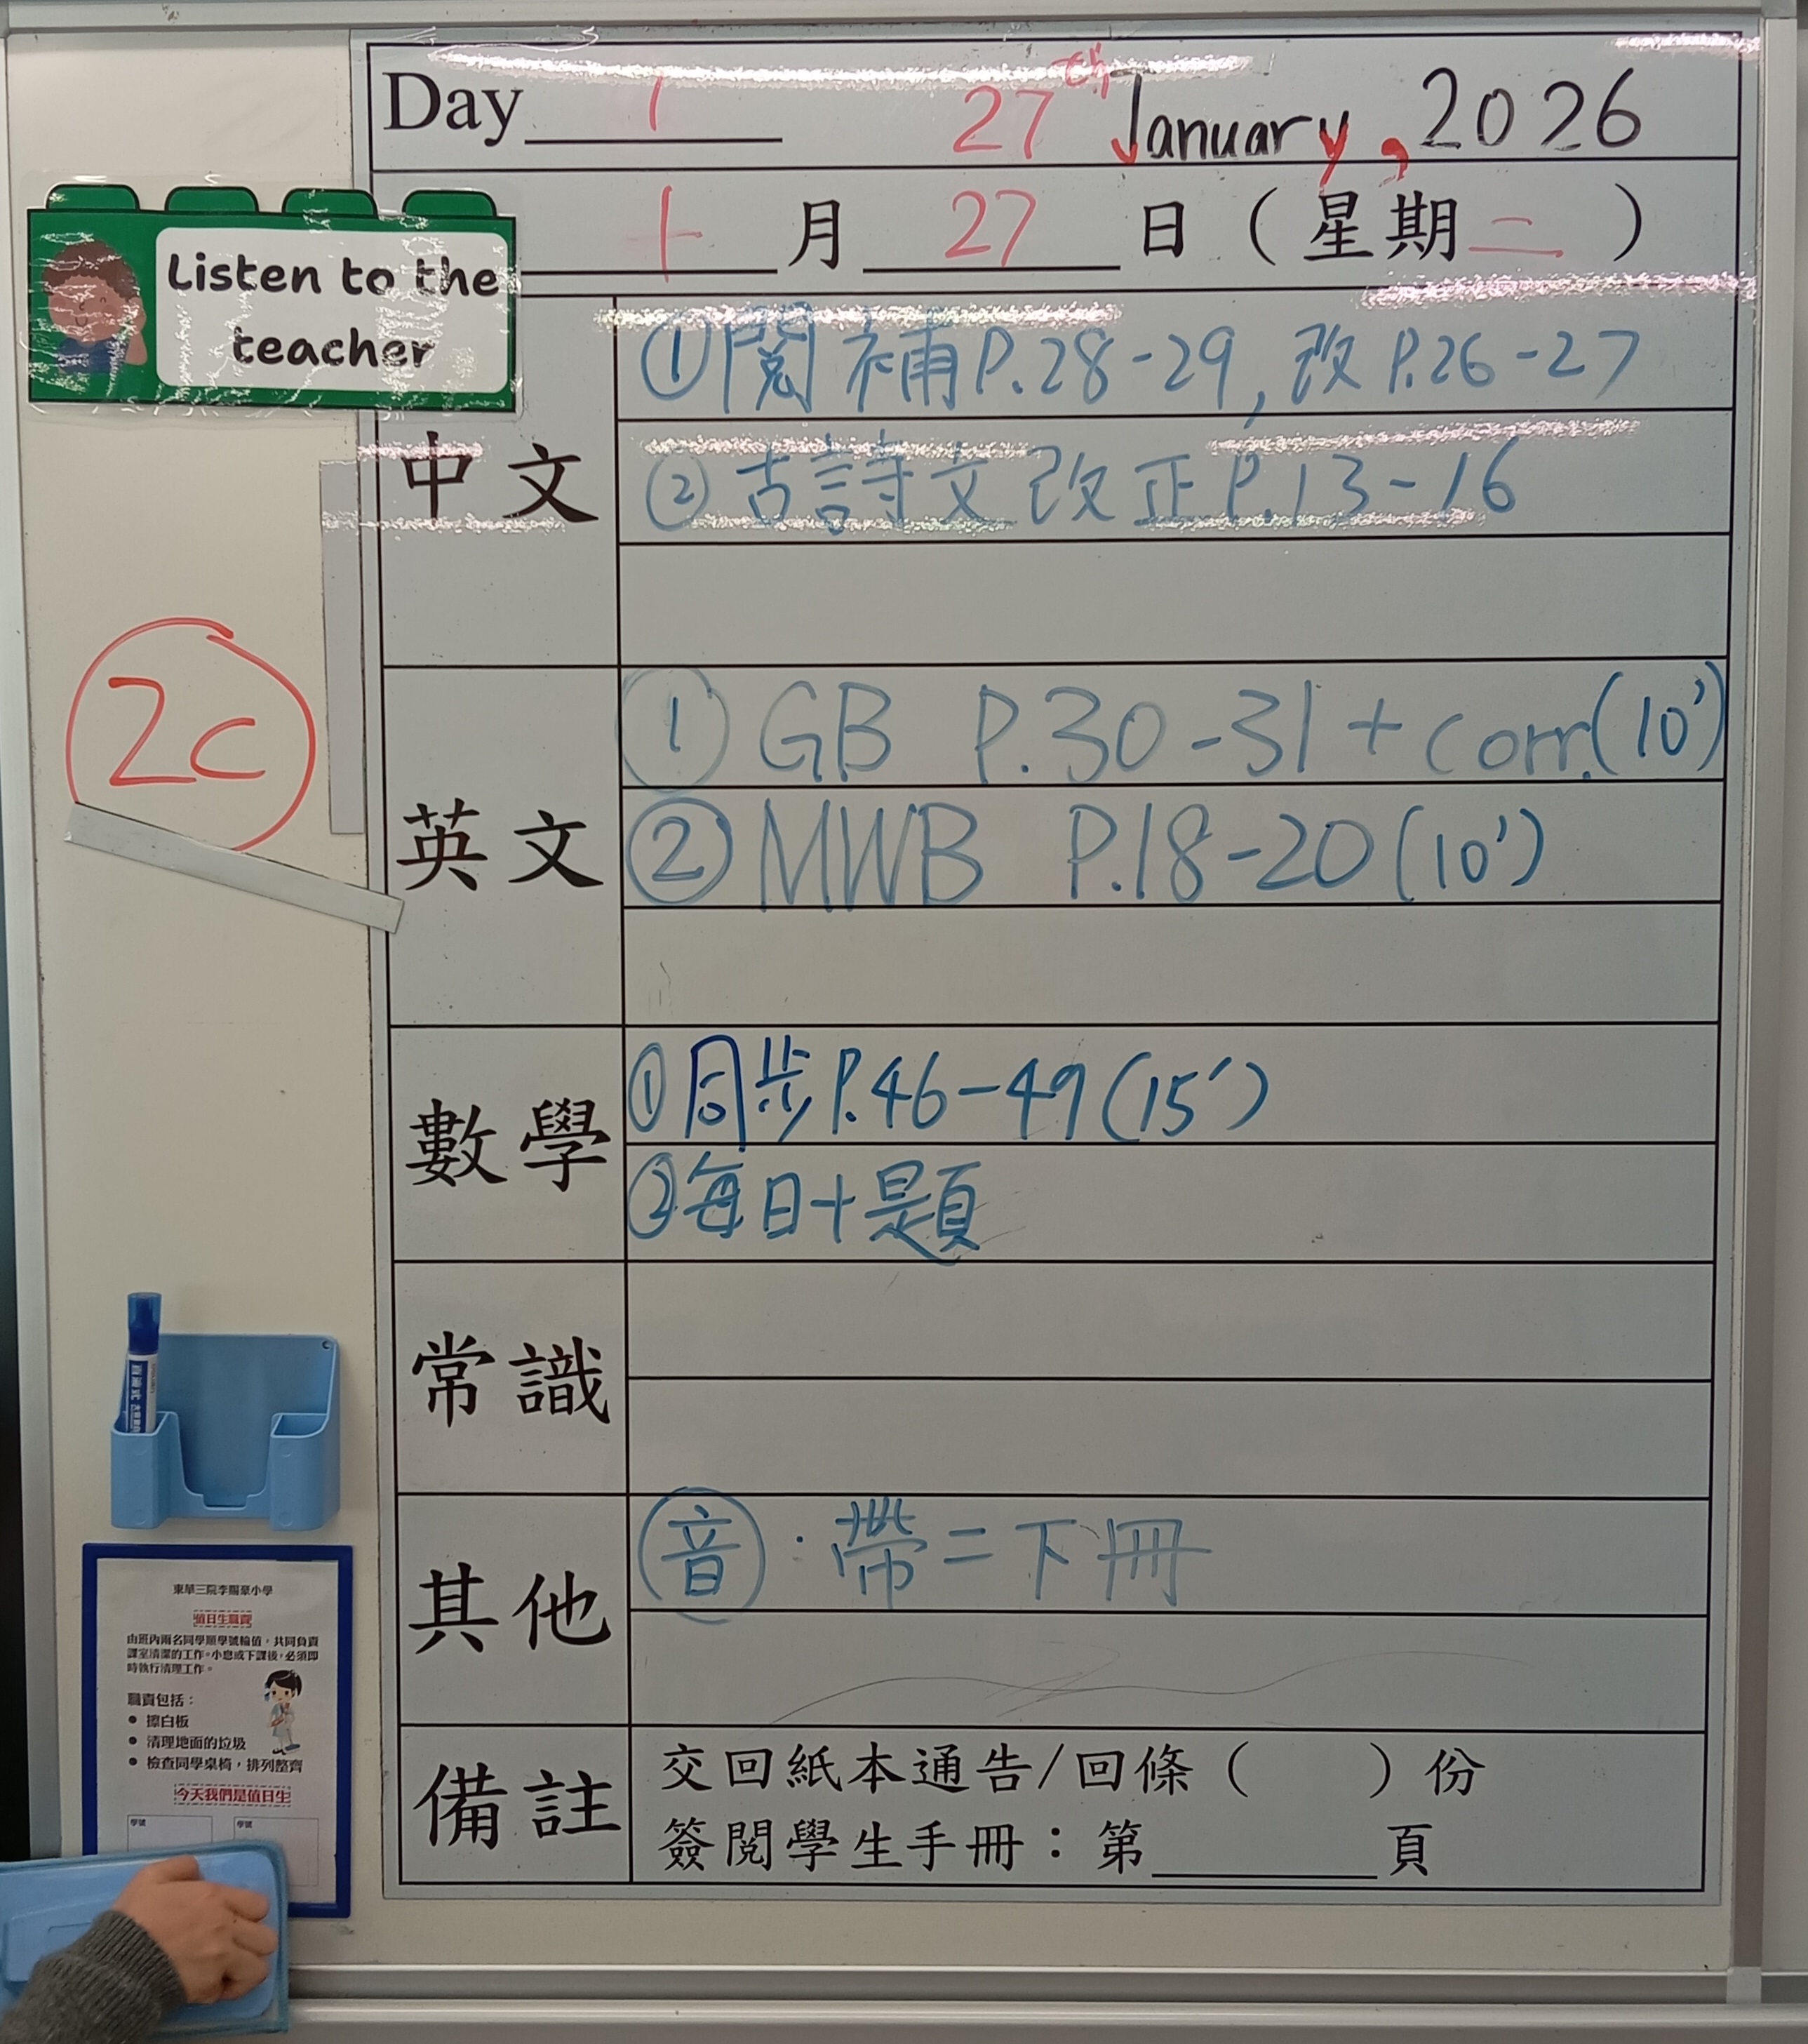 Day 1 27th January, 2026
十月 27 日（星期二）
Listen to the
teacher
中文
①閱補P.28-29, 改P.26-27
②古詩文改正P.13-16
2C
英文
① GB P.30-31 + corr.(10')
② MWB P.18-20 (10')
數學
①同步P.46-49(15')
②每日十題
常識
其他
音・帶二下冊
備註
交回紙本通告/回條（ ）份
簽閱學生手冊：第 頁
東華三院李賜豪小學
值日生職責
由班內兩名同學順學號輪值，共同負責
課室清潔的工作。小息或下課後，必須即
時執行清理工作。
職責包括：
● 擦白板
● 清理地面的垃圾
● 檢查同學桌椅，排列整齊
今天我們是值日生
學號 學號